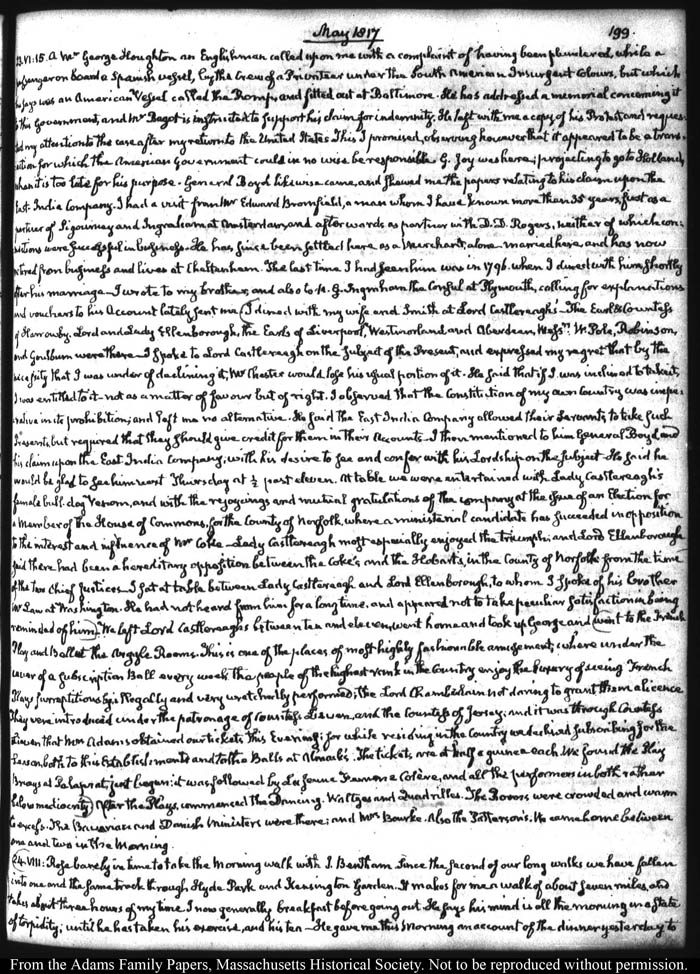 May 1817
199.
23. VI:15. A Mr George Houghton an Englishman called upon me with a complaint of having been plundered, while a
passenger on board a Spanish vessel, by the Crew of a Privateer under the South American Insurgent Colours, but which
he says was an American Vessel called the Romp, and fitted out at Baltimore. He has addressed a memorial concerning it
to this Government, and Mr Bagot is instructed to support his claim for indemnity. He left with me a copy of his Protest, and reques-
ted my attention to the case after my return to the United States. This I promised, observing however that it appeared to be a trans-
action for which the American Government could in no wise be responsible. G. Joy was here; projecting to go to Holland,
when it is too late for his purpose. General Boyd likewise came, and shewed me the papers relating to his claim upon the
East-India Company. I had a visit from Mr Edward Bromfield, a man whom I have known more than 35 years, first as a
partner of Sigourney and Ingraham at Amsterdam, and afterwards as partner with D. D. Rogers, neither of which con-
nections were successful in business. He has since been settled here as a Merchant, alone married here, and has now
retired from business and lives at Cheltenham. The last time I had seen him was in 1796. when I dined with him, shortly
after his marriage. I wrote to my brother, and also to N. G. Ingraham the Consul at Plymouth, calling for explanations
and vouchers to his Account lately sent me. I dined with my wife and Smith at Lord Castlereagh's. The Earl & Countess
of Harrowby, Lord and Lady Ellenborough, the Earls of Liverpool, Westmorland and Aberdeen, Messrs. W. Pole, Robinson,
and Goulburn were there. I spoke to Lord Castlereagh on the subject of the Present, and expressed my regret that by the
necessity that I was under of declining it, Mr Chester would lose his usual portion of it. He said that if I was inclined to take it,
I was entitled to it. not as a matter of favour but of right. I observed that the Constitution of my own Country was impe-
rative in its prohibition; and left me no alternative. He said the East India Company allowed their servants to take such
Presents, but required that they should give credit for them in their Accounts. I then mentioned to him General Boyd, and
his claim upon the East India Company, with his desire to see and confer with his Lordship on the subject. He said he
would be glad to see him next Thursday at ½ past eleven. At table we were entertained with Lady Castlereagh's
female bull-dog Venom, and with the rejoicings and mutual gratulations of the company at the issue of an Election for
a Member of the House of Commons, for the County of Norfolk, where a ministerial candidate has succeeded in opposition
to the interest and influence of Mr Coke. Lady Castlereagh most especially enjoyed the triumph; and Lord Ellenborough
said there had been a hereditary opposition between the Coke's and the Hobarts, in the County of Norfolk from the time
of the two Chief Justices. I sat at table between Lady Castlereagh and Lord Ellenborough, to whom I spoke of his Brother
in Law at Washington. He had not heard from him for a long time, and appeared not to take peculiar satisfaction in being
reminded of him. We left Lord Castlereagh's between ten and eleven, went home and took up George and went to the French
Play and Ball at the Argyle Rooms. This is one of the places of most highly fashionable amusement; where under the
cover of a subscription Ball every week the people of the highest rank in the Country enjoy the luxury of seeing French
Plays surreptitiously, illegally and very wretchedly performed; the Lord Chamberlain not daring to grant them a licence.
They were introduced under the patronage of Countess Lieven, and the Countess of Jersey; and it was through Countess
Lieven that Mrs Adams obtained our tickets this Evening; for while residing in the Country we declined subscribing for the
season both to this Establishment and to the Balls at Almack's. The tickets, are at half a guinea each. We found the Play
Brueys et Palaprat, just begun; it was followed by La Jeune Femme Colère, and all the performers in both rather
below mediocrity. After the Plays, commenced the Dancing. Waltzes and Quadrilles. The Rooms were crowded and warm
to excess. The Bavarian and Danish Ministers were there; and Mrs Bourke. Also the Patterson's. We came home between
one and two in the Morning.
24. VIII: Rose barely in time to take the Morning walk with J. Bentham. Since the second of our long walks we have fallen
into one and the same track through Hyde Park and Kensington Garden. It makes for me a walk of about seven miles, and
takes about three hours of my time. I now generally breakfast before going out. He says his mind is all the morning in a state
of torpidity; until he has taken his exercise, and his tea. He gave me this Morning an account of the dinner yesterday to
From the Adams Family Papers, Massachusetts Historical Society. Not to be reproduced without permission.